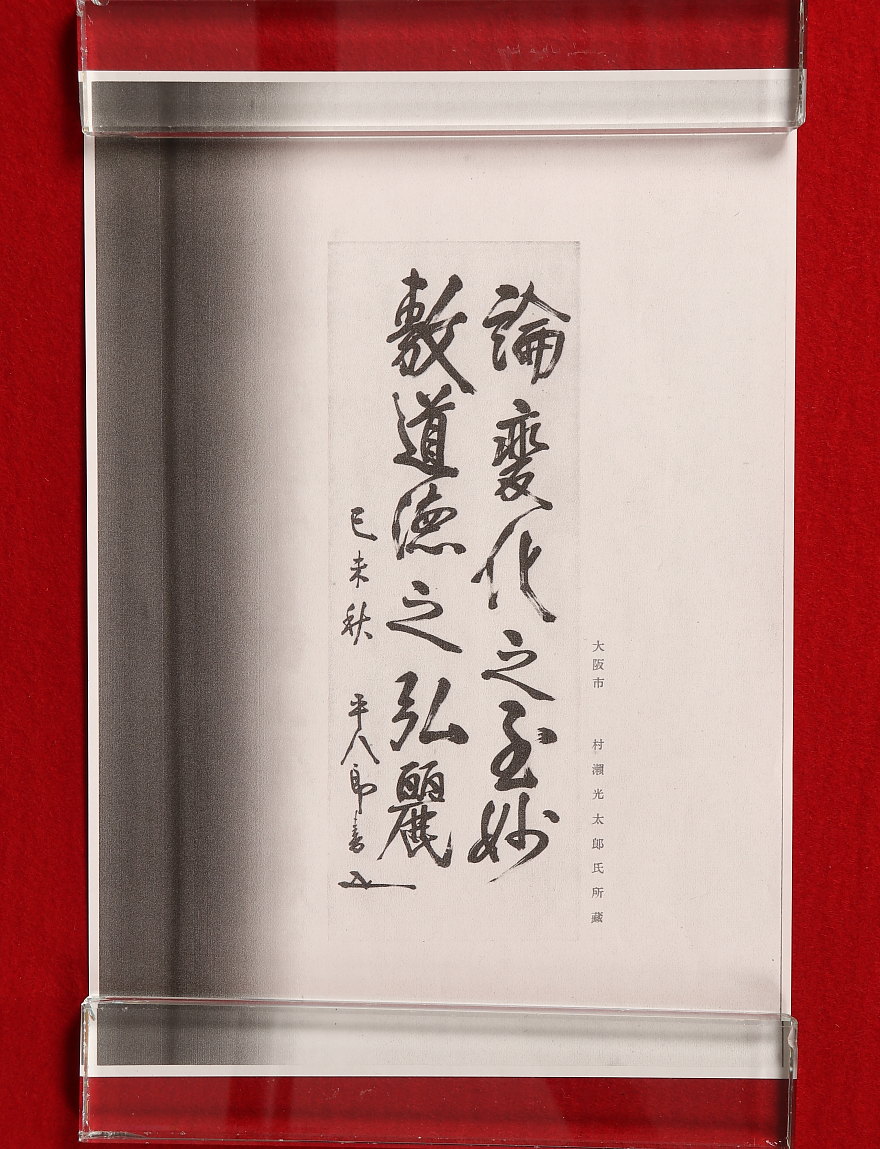 大阪市 村瀨光太郎氏所藏
論変化之至妙
敷道徳之弘麗
己未秋 平八郎書